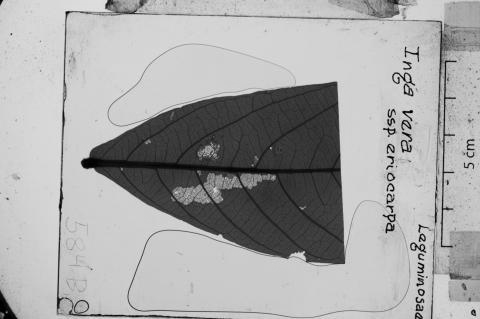 Inga vera
ssp eriocarpa
Leguminosae
5 cm
584B